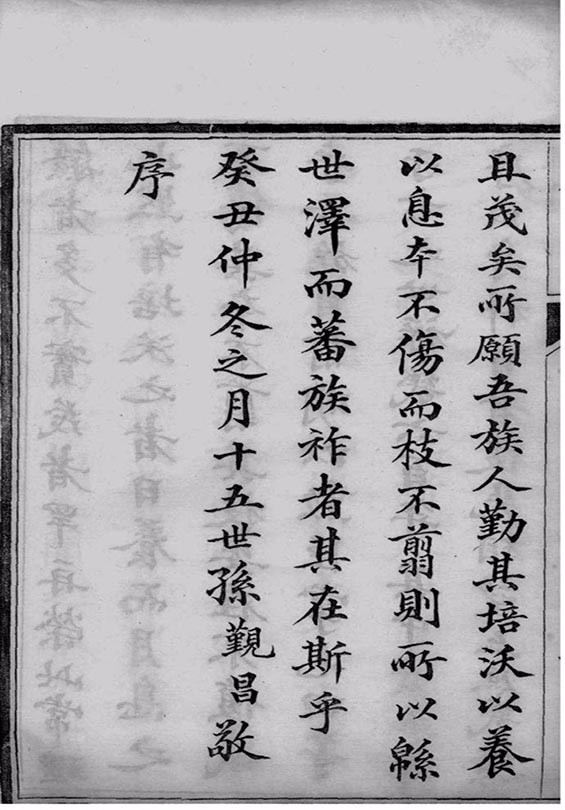 且茂矣所願吾族人勤其培沃以養
以息本不傷而枝不翦則所以緜
世澤而蕃族祚者其在斯乎
癸丑仲冬之月十五世孫覲昌敬
序